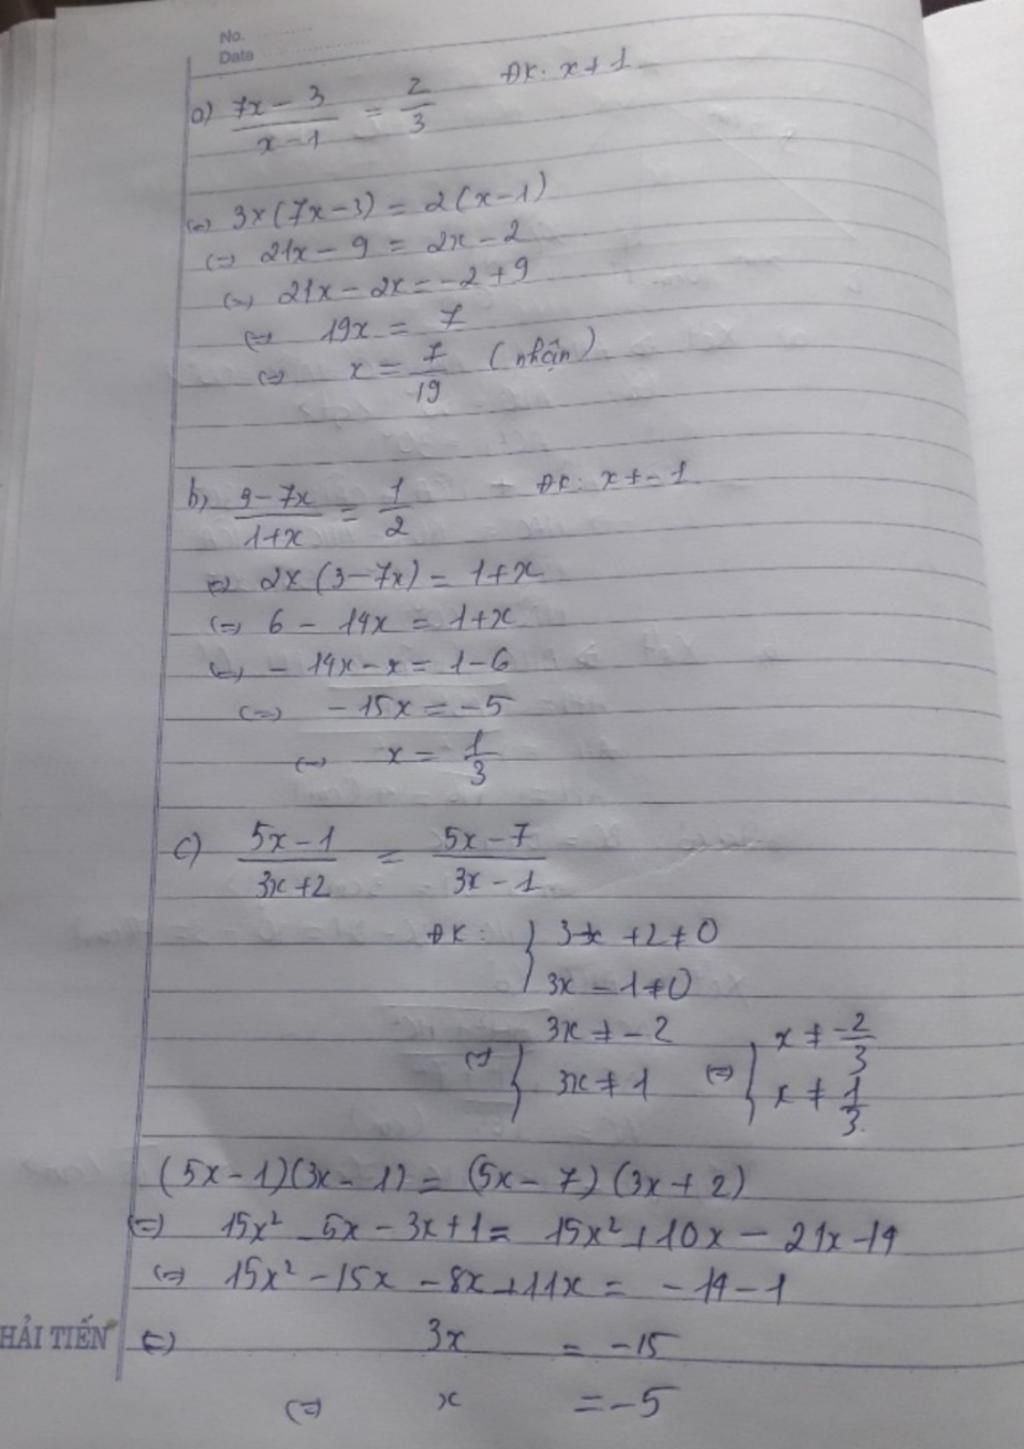 No.
Date
a) 7x - 3 / x - 1 = 2/3 ĐK: x ≠ 1
(=) 3x(7x-3) = 2(x-1)
(=) 21x - 9 = 2x - 2
(=) 21x - 2x = -2 + 9
(=) 19x = 7
(=) x = 7/19 (nhận)
b, 3 - 7x / 1 + x = 1/2 ĐK: x ≠ -1
(=) 2x(3-7x) = 1+x
(=) 6 - 14x = 1+x
(=) -14x - x = 1-6
(=) -15x = -5
(=) x = 1/3
c) 5x - 1 / 3x + 2 = 5x - 7 / 3x - 1
ĐK: { 3x + 2 ≠ 0
3x - 1 ≠ 0
(=) { 3x ≠ -2 (=) { x ≠ -2/3
3x ≠ 1 x ≠ 1/3
(5x-1)(3x-1) = (5x-7)(3x+2)
(=) 15x² - 5x - 3x + 1 = 15x² + 10x - 21x - 14
(=) 15x² - 15x - 8x + 11x = -14 - 1
(=) 3x = -15
(=) x = -5
HẢI TIẾN